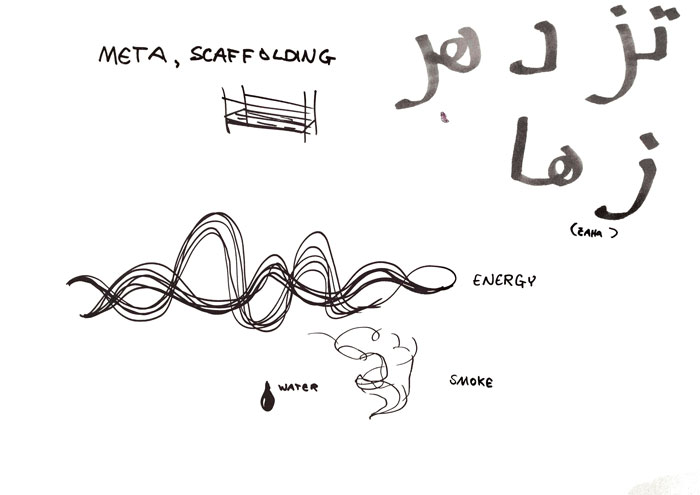 META, SCAFFOLDING
تزدهر
زها
(ZAHA)
ENERGY
WATER
SMOKE